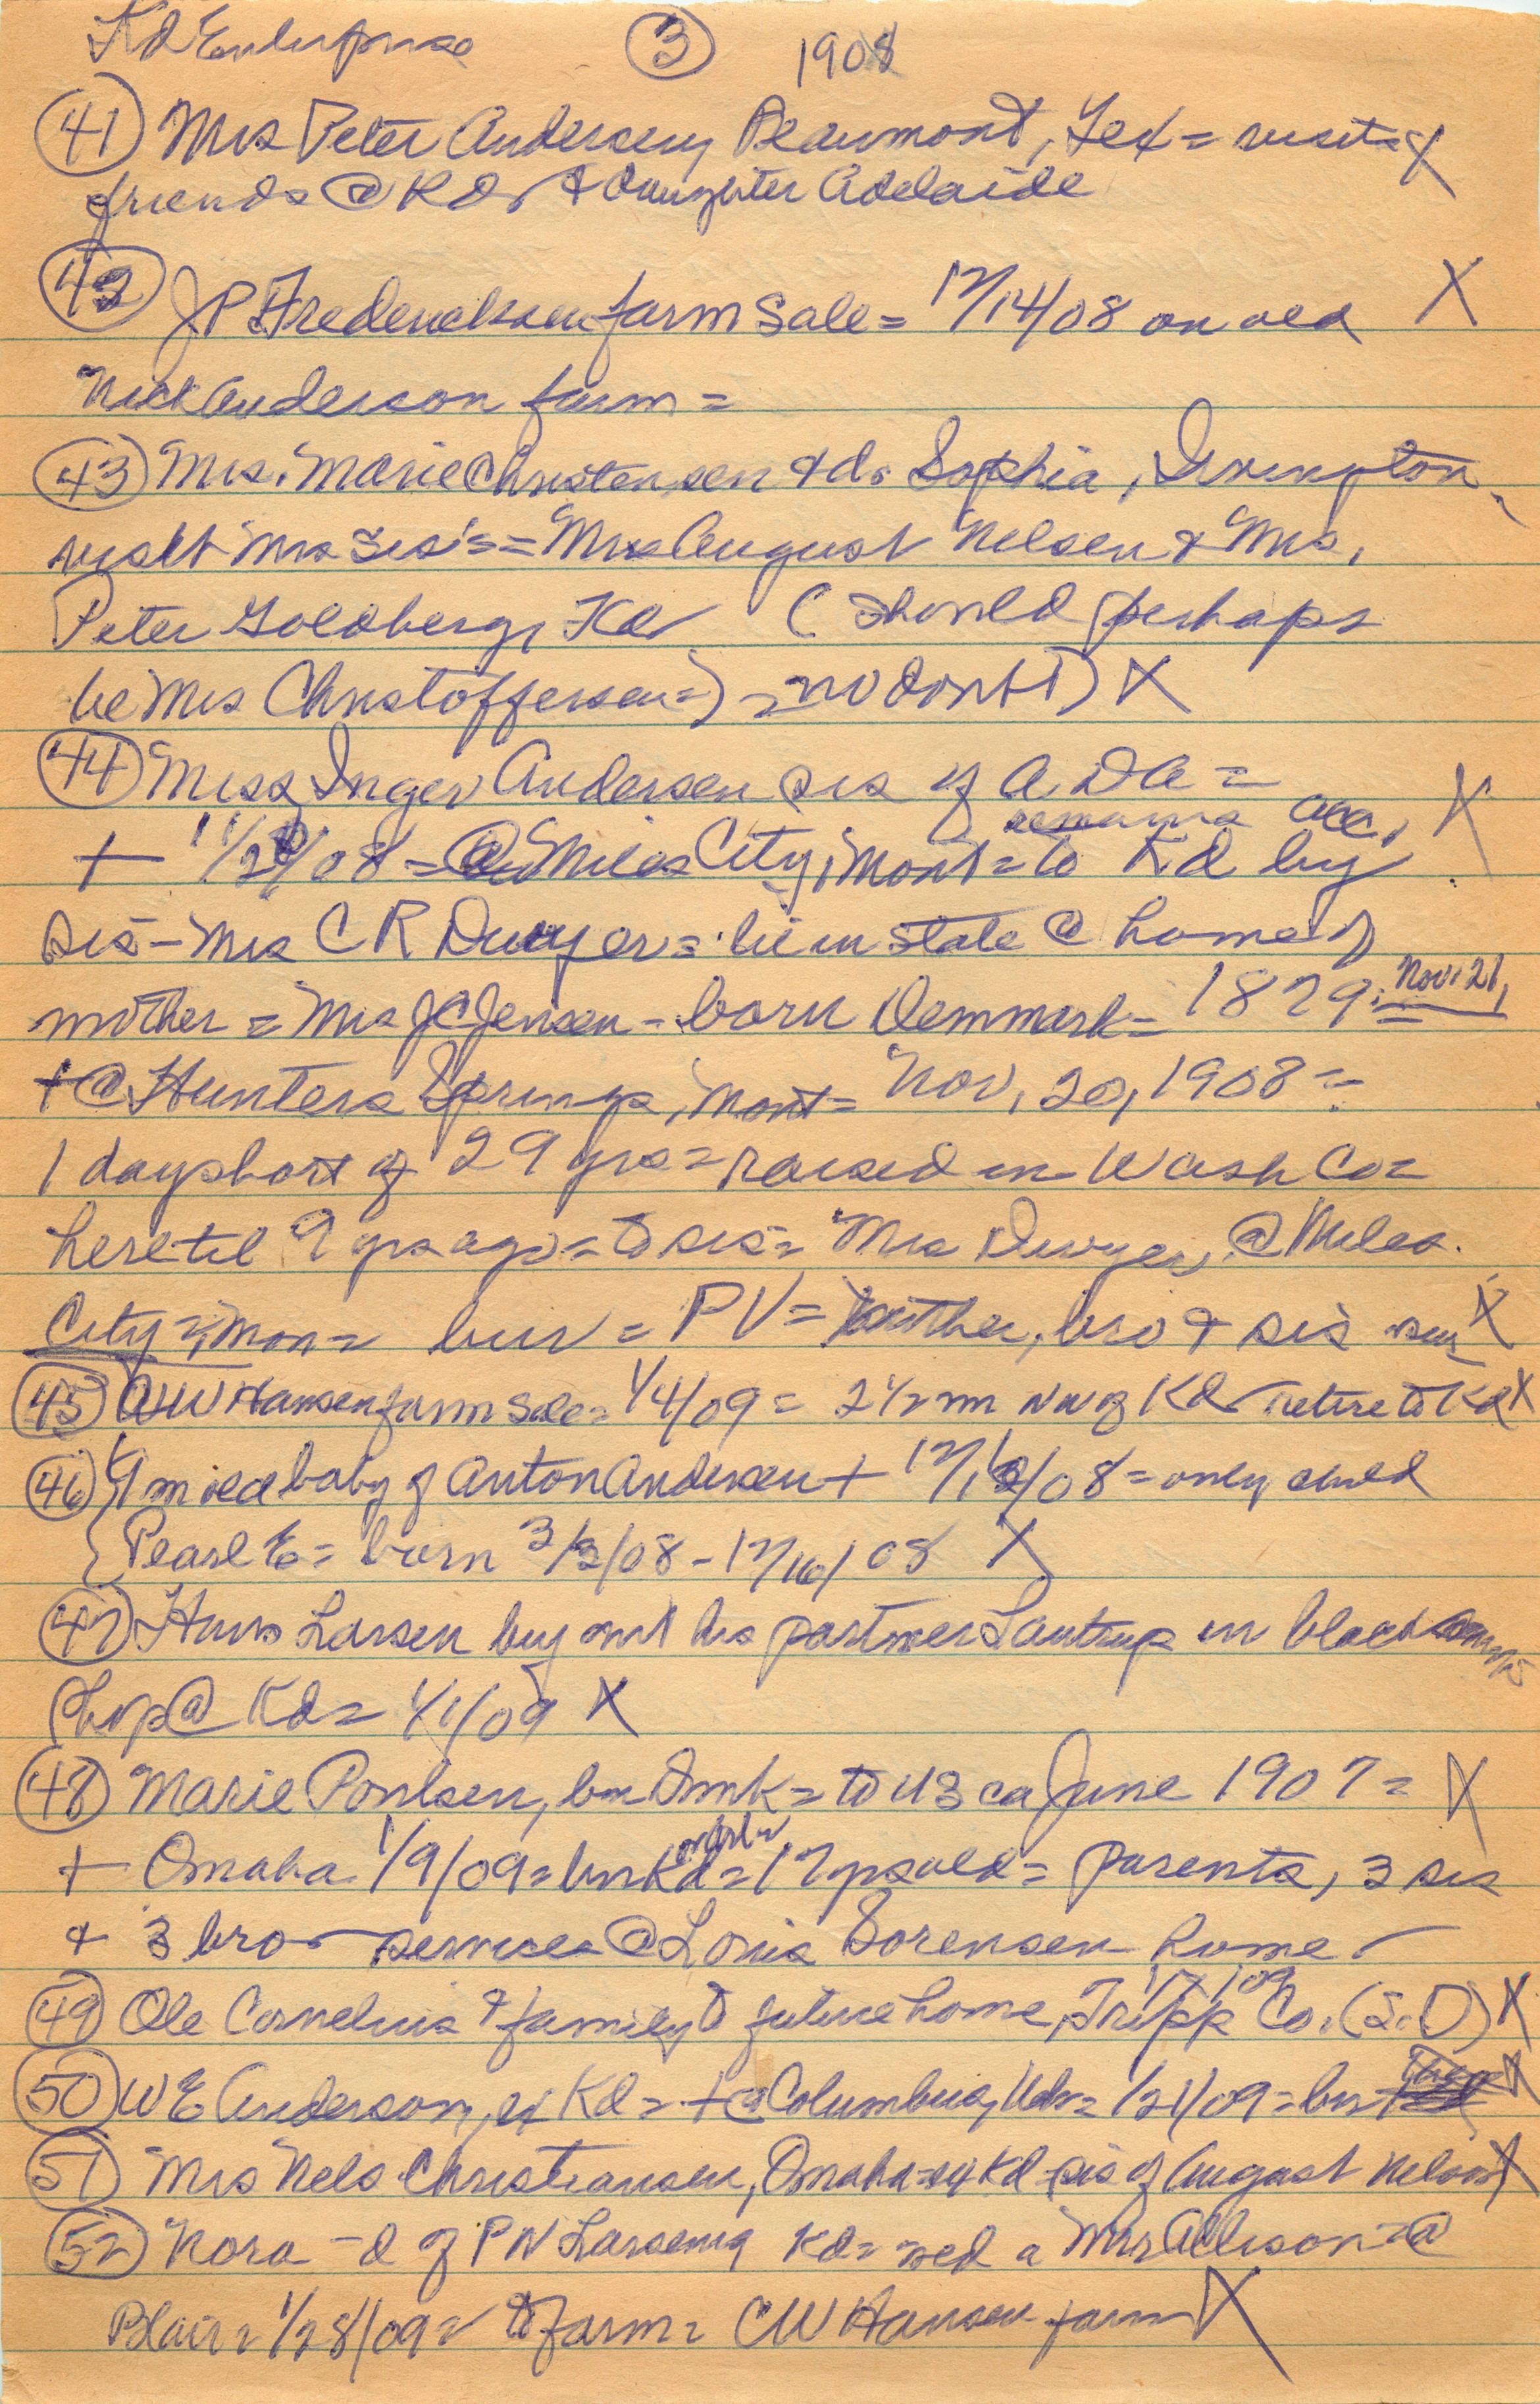 Kd Enterprise ③ 1908
㊶ Mrs Peter Andersen, Beaumont, Tex = visits X
friends @ Kd & daughter Adelaide
㊷ JP Fredericksen farm sale = 12/14/08 on old X
Nick Anderson farm =
㊸ Mrs. Marie Christensen & d. Sophia, Irvington,
visit Mrs sis's = Mrs August Nelsen & Mrs.
Peter Goldberg, Kd (should perhaps
be Mrs Christoffersen =) = no don't) X
㊹ Miss Inger Andersen sis of A D A =
remains acc. X
+ 11/20/08 = @ Miles City, Mont = to Kd by
sis - Mrs C R Dwyer = lie in state @ home of
mother = Mrs JC Jensen - born Denmmark = 1879 = Nov. 21,
+ @ Hunters Springs, Mont = Nov, 20, 1908 =
1 day short of 29 yrs = raised in Wash Co =
here til 9 yrs ago = to sis = Mrs Dwyer, @ Miles
City, Mon = bur = PV = mother, bro & sis sur X
㊺ CW Hansen farm sale = 1/4/09 = 2 1/2 m NW of Kd retire to Kd X
㊻ 9 m old baby of Anton Andersen + 12/16/08 = only child
Pearl E = born 3/3/08 - 12/16/08 X
㊼ Hans Larsen buy out his partner Lautrup in blacksmith
shop @ Kd = 1/1/09 X
㊽ Marie Poulsen, bn Dmk = to US ca June 1907 = X
+ Omaha 1/9/09 = bur Kd = 17 yrs old = parents, 3 sis
& 3 bro services @ Louis Sorensen home
㊾ Ole Cornelius & family to future home, Tripp Co. (S.D) X
1/7/09
㊿ W E Anderson, ex Kd = + @ Columbus, Neb = 1/21/09 = bur X
(51) Mrs Nels Christiansen, Omaha = ex Kd = sis of August Nelson X
(52) Nora - d of P N Larsen, Kd = wed a Mr Allison = @
Blair = 1/28/09 = to farm = CW Hansen farm X